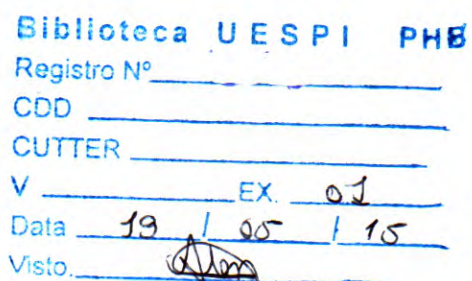 Biblioteca UESPI PHB
Registro Nº
CDD
CUTTER
V EX. 01
Data 19 / 05 / 15
Visto.